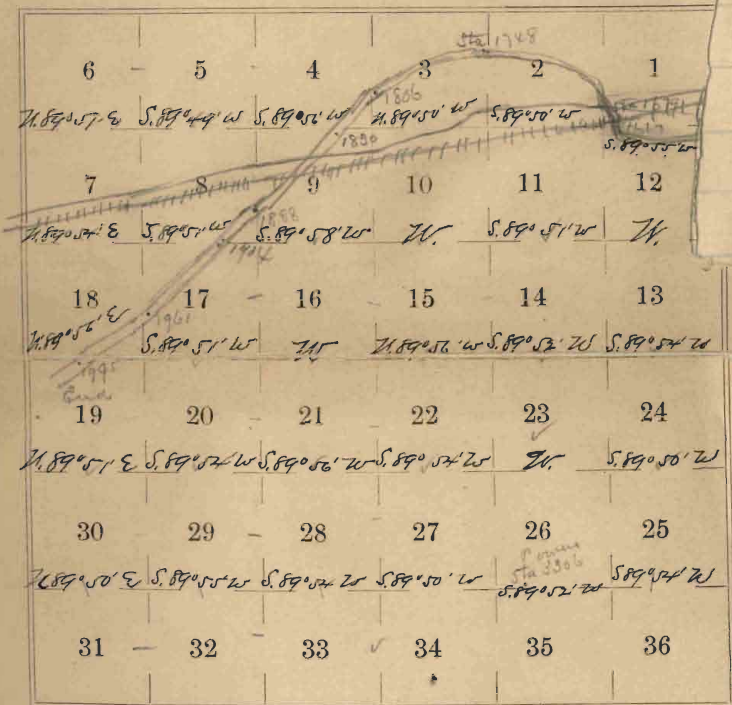 Sta 1748
6 5 4 3 2 1
1806
N.89°57'E S.89°49'W S.89°56'W N.89°50'W S.89°50'W
1850
S.89°55'W
7 8 9 10 11 12
1888
N.89°54'E S.89°51'W S.89°58'W W. S.89°51'W W.
1914
18 17 16 15 14 13
1961
N.89°56'E S.89°51'W W N.89°56'W S.89°52'W S.89°54'W
1995
End
19 20 21 22 23 24
N.89°51'E S.89°54'W S.89°56'W S.89°54'W W. S.89°50'W
30 29 28 27 26 25
Sta 3306
N.89°50'E S.89°55'W S.89°54'W S.89°50'W S.89°52'W S.89°54'W
31 32 33 34 35 36